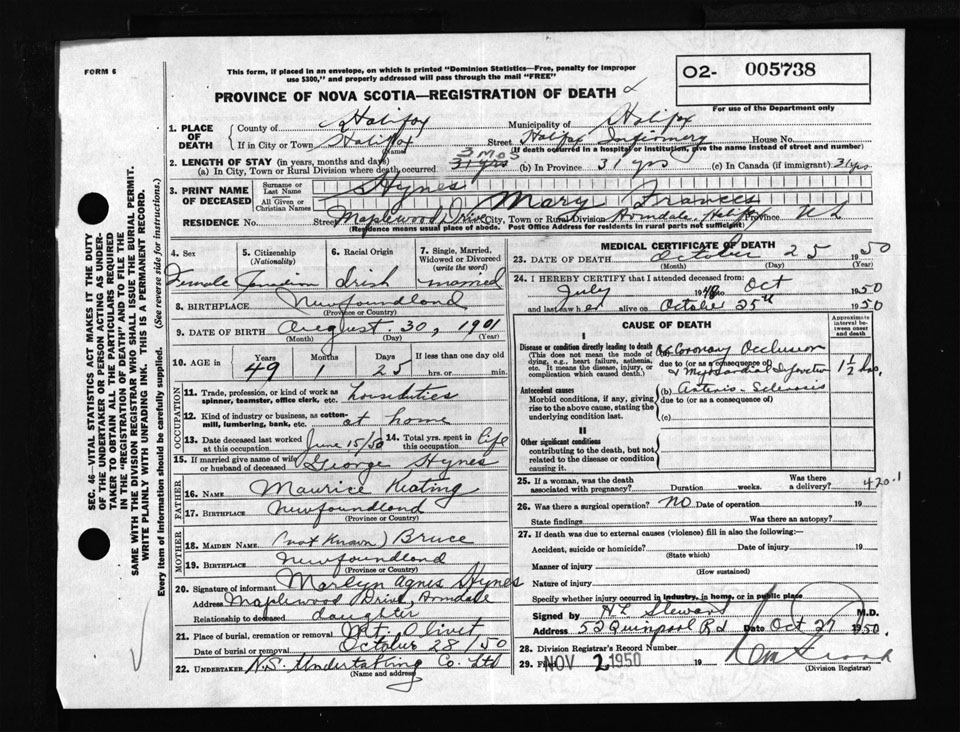 FORM 6
This form, if placed in an envelope, on which is printed "Dominion Statistics—Free, penalty for improper
use $300," and properly addressed will pass through the mail "FREE"
PROVINCE OF NOVA SCOTIA—REGISTRATION OF DEATH
O2- 005738
For use of the Department only
SEC. 46—VITAL STATISTICS ACT MAKES IT THE DUTY
OF THE UNDERTAKER OR PERSON ACTING AS UNDER-
TAKER TO OBTAIN ALL THE PARTICULARS REQUIRED
IN THE "REGISTRATION OF DEATH" AND TO FILE THE
SAME WITH THE DIVISION REGISTRAR WHO SHALL ISSUE THE BURIAL PERMIT.
WRITE PLAINLY WITH UNFADING INK. THIS IS A PERMANENT RECORD.
Every item of information should be carefully supplied. (See reverse side for instructions.)
1. PLACE OF DEATH
County of Halifax Municipality of Halifax
If in City or Town Halifax Street Halifax Infirmary House No.
(Name) (If death occurred in a hospital or institution, give the name instead of street and number)
2. LENGTH OF STAY (in years, months and days)
(a) In City, Town or Rural Division where death occurred 31 yrs 3 mos (b) In Province 31 yrs (c) In Canada (if immigrant) 31 yrs
3. PRINT NAME OF DECEASED
Surname or Last Name Hynes
All Given or Christian Names Mary Frances
RESIDENCE No. Street Maplewood Drive City, Town or Rural Division Armdale, Halifax Province N S
(Residence means usual place of abode. Post Office Address for residents in rural parts not sufficient)
4. Sex Female
5. Citizenship (Nationality) Canadian
6. Racial Origin Irish
7. Single, Married, Widowed or Divorced (write the word) married
8. BIRTHPLACE Newfoundland
(Province or Country)
9. DATE OF BIRTH August 30, 1901
(Month) (Day) (Year)
10. AGE in Years 49 Months 1 Days 25 If less than one day hrs. or min.
OCCUPATION
11. Trade, profession, or kind of work as spinner, teamster, office clerk, etc. houseduties
12. Kind of industry or business, as cotton-mill, lumbering, bank, etc. at home
13. Date deceased last worked at this occupation June 15/50 14. Total yrs. spent in this occupation life
15. If married give name of wife or husband of deceased George Hynes
FATHER
16. NAME Maurice Keating
17. BIRTHPLACE Newfoundland
(Province or Country)
MOTHER
18. MAIDEN NAME (not known) Bruce
19. BIRTHPLACE Newfoundland
(Province or Country)
20. Signature of informant Marlyn Agnes Hynes
Address Maplewood Drive, Armdale
Relationship to deceased daughter
21. Place of burial, cremation or removal Mt. Olivet
Date of burial or removal October 28/50
22. UNDERTAKER N.S. Undertaking Co. Ltd
(Name and address)
MEDICAL CERTIFICATE OF DEATH
23. DATE OF DEATH October 25 1950
(Month) (Day) (Year)
24. I HEREBY CERTIFY that I attended deceased from:
July 1948 to Oct 1950
and last saw her alive on October 25th 1950
CAUSE OF DEATH
Approximate interval between onset and death
I
Disease or condition directly leading to death (a) Coronary Occlusion
(This does not mean the mode of dying, e.g., heart failure, asthenia, etc. It means the disease, injury, or complication which caused death.)
due to (or as a consequence of)
Myocardial Infarction 1½ hrs.
Antecedent causes (b) Arterio-Sclerosis
Morbid conditions, if any, giving rise to the above cause, stating the underlying condition last.
due to (or as a consequence of)
(c)
II
Other significant conditions
contributing to the death, but not related to the disease or condition causing it.
25. If a woman, was the death associated with pregnancy? Duration weeks. Was there a delivery? 420.1
26. Was there a surgical operation? NO Date of operation 19
State findings Was there an autopsy?
27. If death was due to external causes (violence) fill in also the following:—
Accident, suicide or homicide? Date of injury 19
(State which)
Manner of injury
(How sustained)
Nature of injury
Specify whether injury occurred in industry, in home, or in public place
Signed by H L Stewart M.D.
Address 52 Quinpool Rd Date Oct 27 1950.
28. Division Registrar's Record Number
29. Filed NOV 2 1950 19
(Division Registrar)